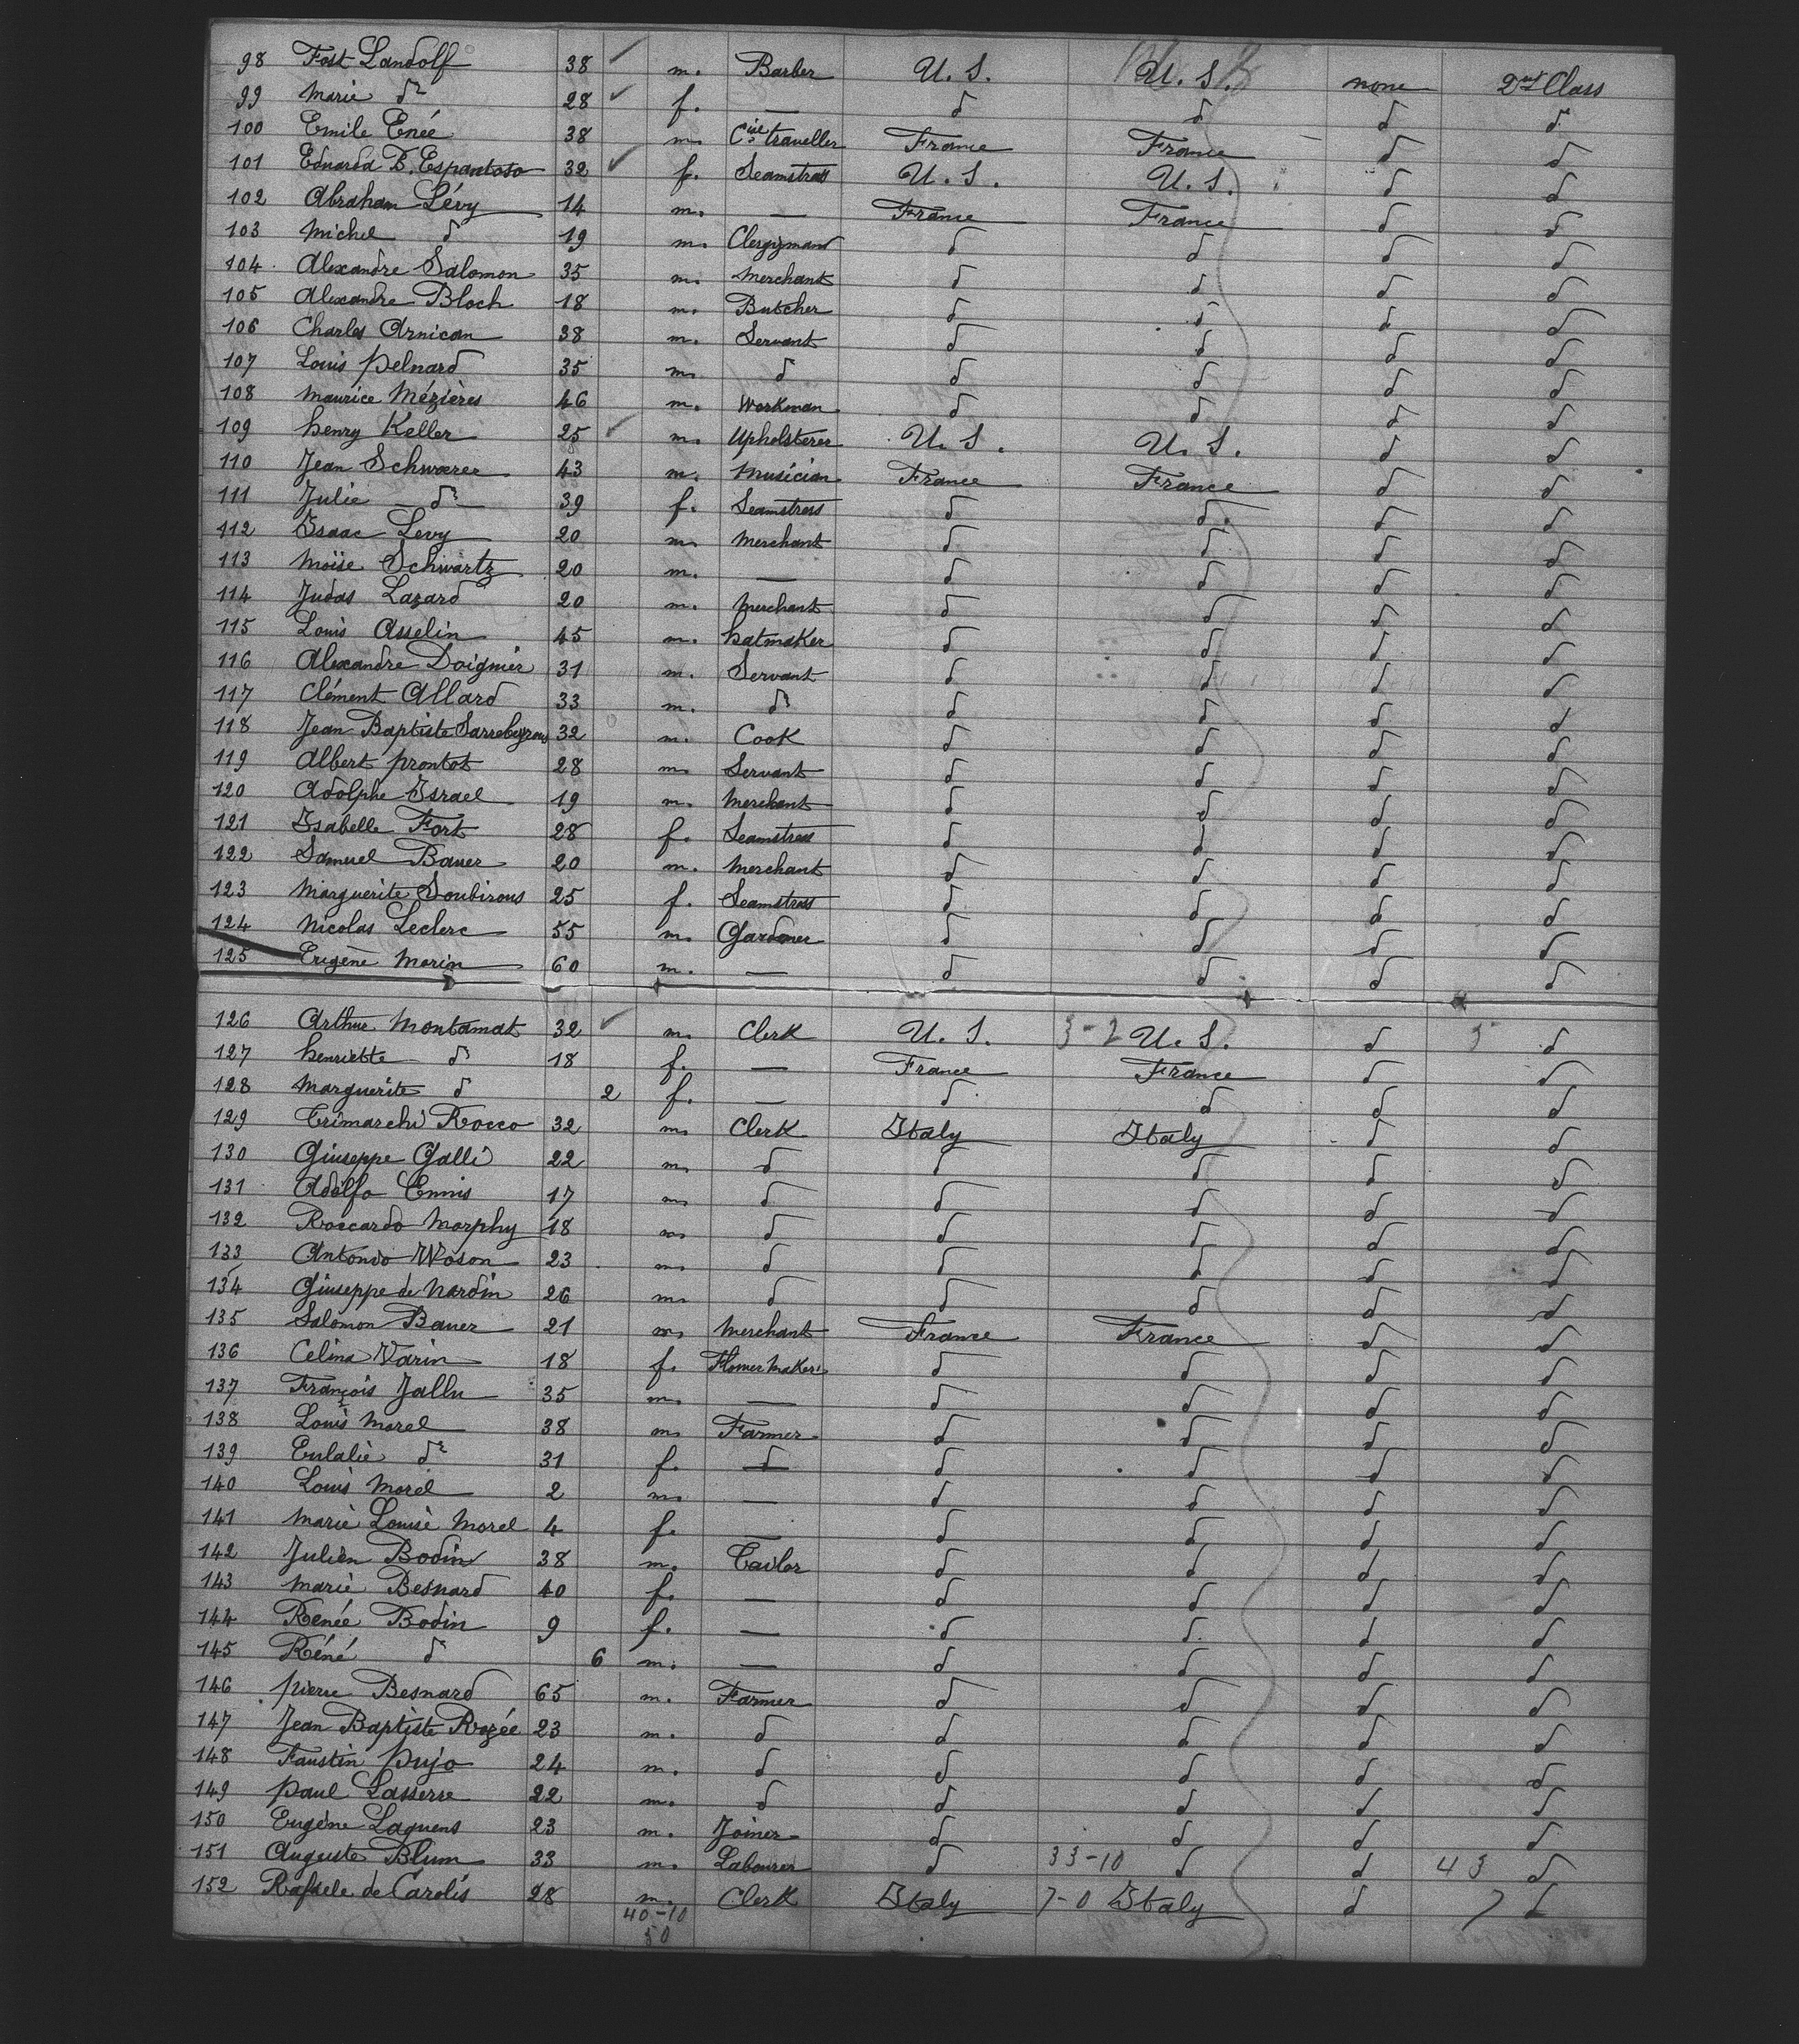 98 Fost Landolf 38 ✓ m. Barber U. S. U. S. none 2nd Class
99 Marie do 28 ✓ f. — d d d d
100 Emile Enée 38 m. Cial traveller France France d d
101 Eduarda D. Espantoso 32 ✓ f. Seamstress U. S. U. S. d d
102 Abraham Lévy 14 m. — France France d d
103 Michel d 19 m. Clergyman d d d d
104 Alexandre Salomon 35 m. Merchant d d d d
105 Alexandre Bloch 18 m. Butcher d d d d
106 Charles Arnican 38 m. Servant d d d d
107 Louis Pelnard 35 m. d d d d d
108 Maurice Mézières 46 m. Workman d d d d
109 Henry Keller 25 ✓ m. Upholsterer U. S. U. S. d d
110 Jean Schwarer 43 m. Musician France France d d
111 Julie do 39 f. Seamstress d d d d
112 Isaac Levy 20 m. Merchant d d d d
113 Moïse Schwartz 20 m. — d d d d
114 Judas Lazard 20 m. Merchant d d d d
115 Louis Asselin 45 m. hatmaker d d d d
116 Alexandre Doignier 31 m. Servant d d d d
117 Clément Allard 33 m. do d d d d
118 Jean Baptiste 32 m. Cook d d d d
119 Albert Prontot 28 m. Servant d d d d
120 Adolphe Israel 19 m. Merchant d d d d
121 Isabelle Fort 28 f. Seamstress d d d d
122 Samuel Bauer 20 m. Merchant d d d d
123 Marguerite Soubirous 25 f. Seamstress d d d d
124 Nicolas Leclerc 55 m. Gardener d d d d
125 Eugène Morin 60 m. — d d d d
126 Arthur Montamat 32 ✓ m. Clerk U. S. 3-2 U. S. d 5 d
127 henriette do 18 f. — France France d d
128 Marguerite d 2 f. — d d d d
129 Trimarchi Rocco 32 m. Clerk Italy Italy d d
130 Giuseppe Galli 22 m. d d d d d
131 Adolfo Ennis 17 m. d d d d d
132 Roccardo Morphy 18 m. d d d d d
133 Antondo Woson 23 m. d d d d d
134 Giuseppe de Nardin 26 m. d d d d d
135 Salomon Bauer 21 m. Merchant France France d d
136 Celina Varin 18 f. Flower Maker d d d d
137 François Jallu 35 m. — d d d d
138 Louis Morel 38 m. Farmer d d d d
139 Eulalie do 31 f. d d d d
140 Louis Morel 2 m. — d d d d
141 Marie Louise Morel 4 f. — d d d d
142 Julien Bodin 38 m. Tailor d d d d
143 Marie Besnard 40 f. — d d d d
144 Renée Bodin 9 f. — d d d d
145 Réné d 6 m. — d d d d
146 Pierre Besnard 65 m. Farmer d d d d
147 Jean Baptiste Rozée 23 m. d d d d d
148 Faustin Pujo 24 m. d d d d d
149 Paul Lasserre 22 m. d d d d d
150 Eugène Laguens 23 m. Joiner d d d d
151 Auguste Blum 33 m. Labourer d 33-10 d d 43 d
152 Rafaele de Carolis 28 m. Clerk Italy 7-0 Italy d 7 d
40-10
50